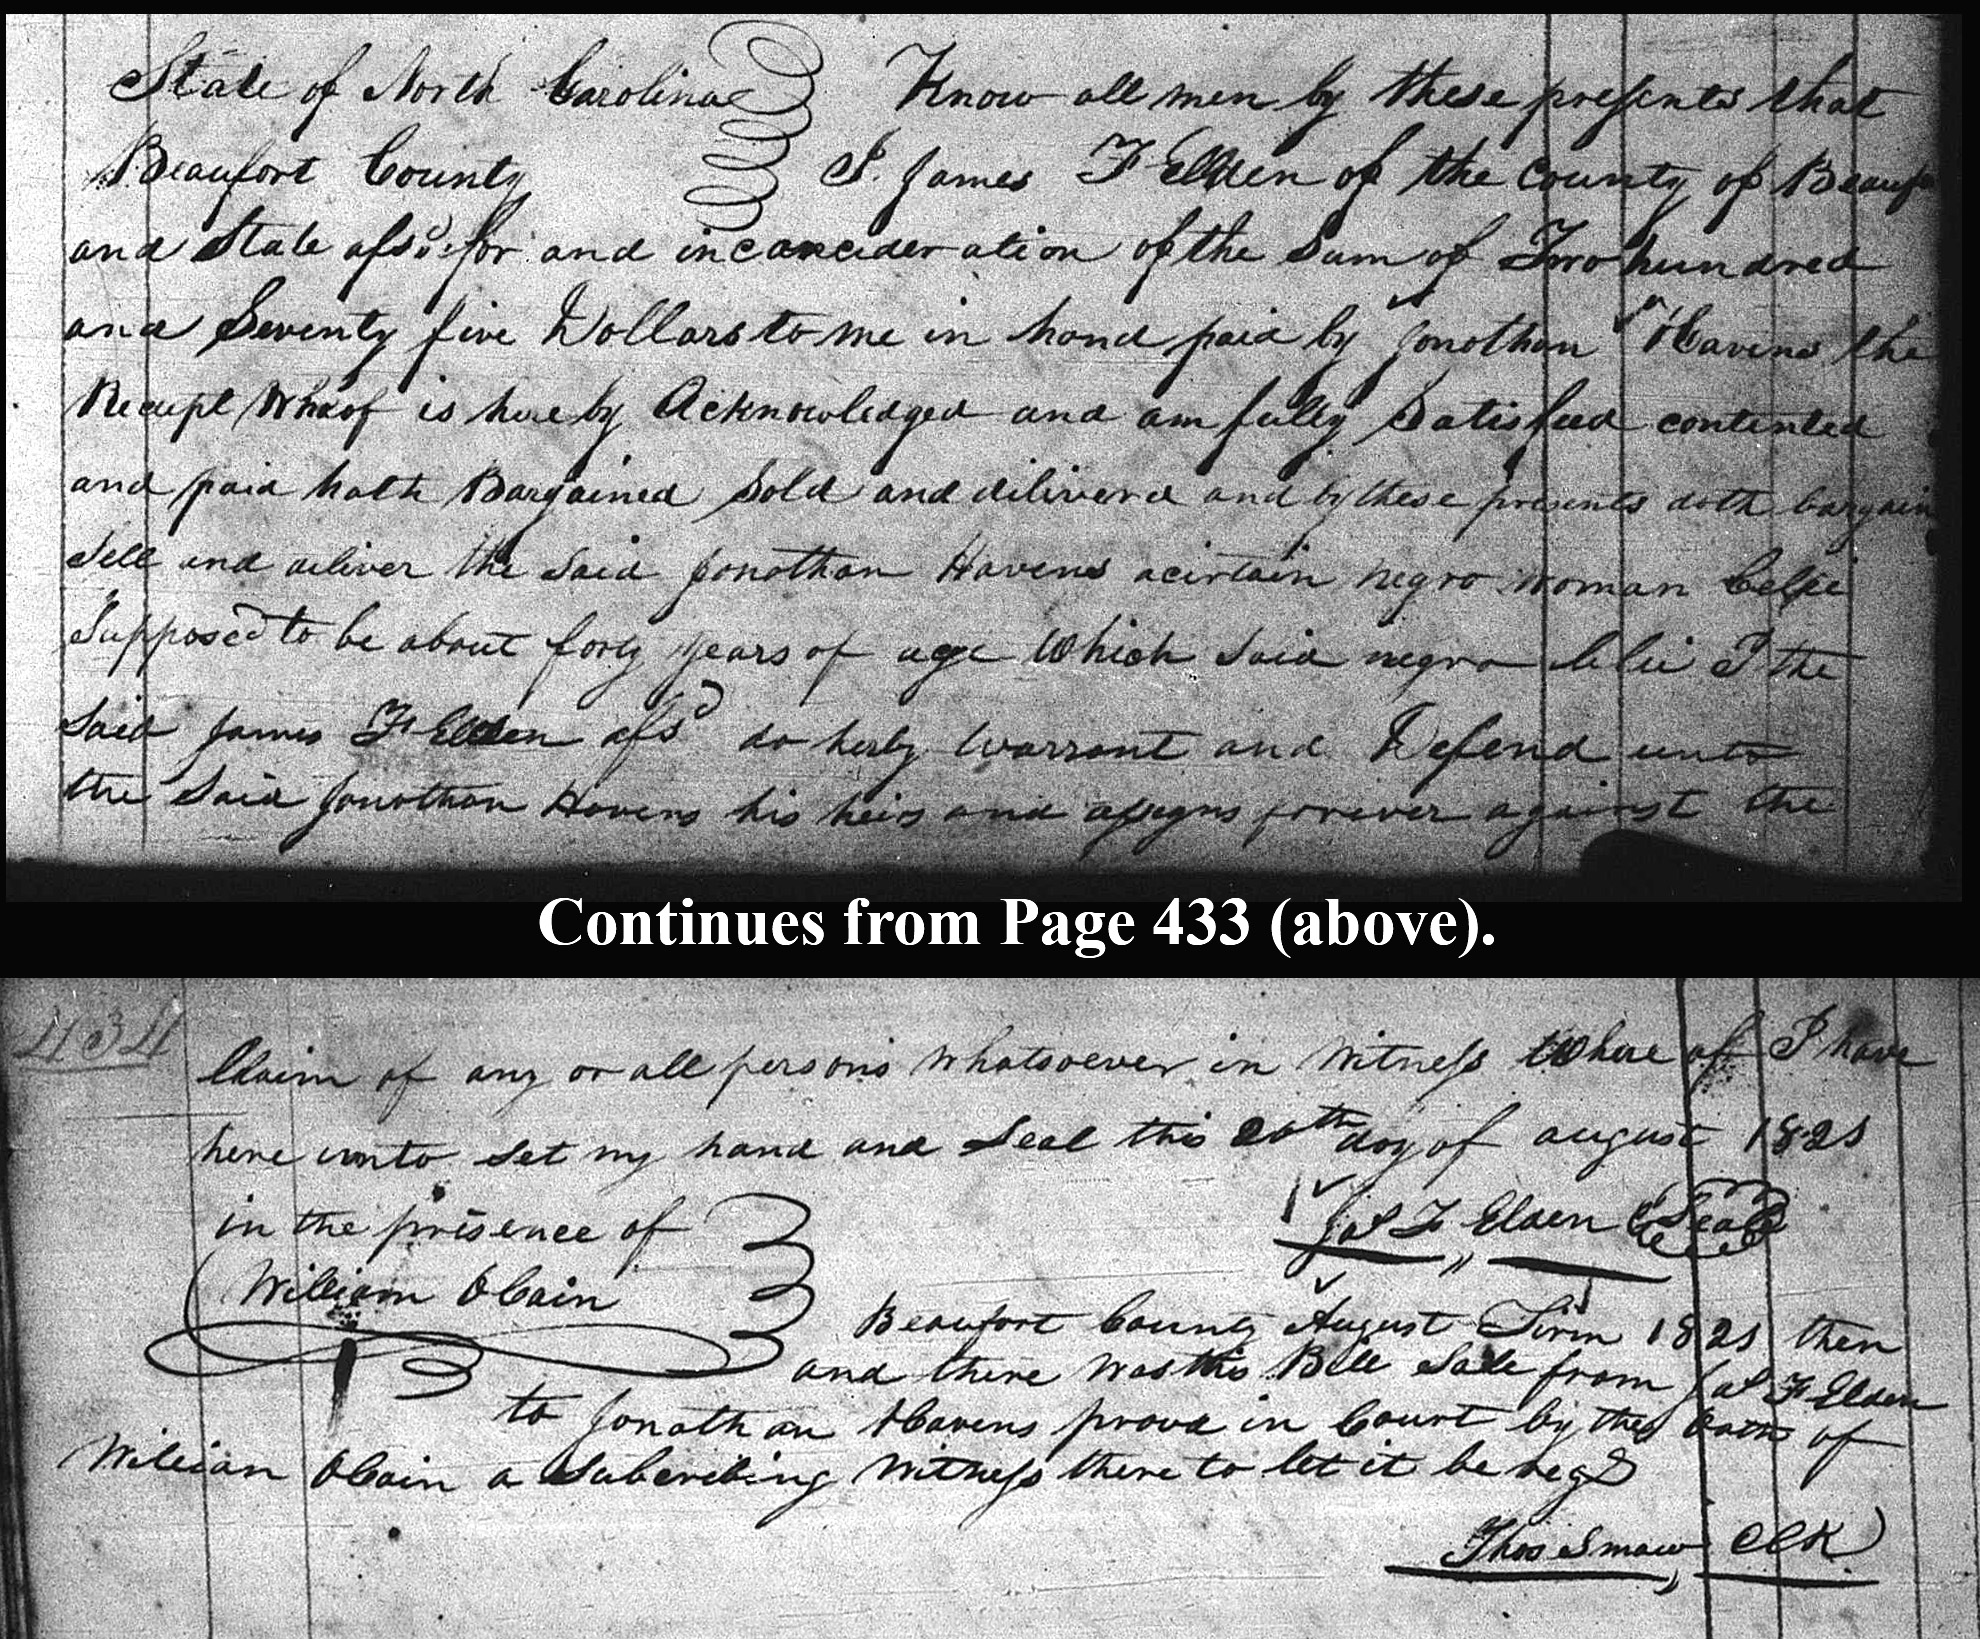 State of North Carolina Know all men by these presents that
Beaufort County I. James F Elden of the County of Beauf
and State afsd. for and in concideration of the Sum of Two hundred
and Seventy five Dollars to me in hand paid by Jonathan Havens the
Receipt Wharof is here by Acknowledged and am fully Satisfied contented
and paid hath Bargained Sold and dilivered and by these presents doth bargain
Sell and deliver the Said Jonathan Havens a cirtain negro woman Celie
Supposed to be about forty years of age Which Said negro Celie I the
Said James F Elden afsd do herby Warrant and Defend unto
the Said Jonathan Havens his heirs and assigns forever against the
Continues from Page 433 (above).
434
Claim of any or all persons Whatsoever in Witness Where of I have
here unto Set my hand and Seal this 20th day of august 1821
in the presence of Jas F Elden Seal
William OCain
Beaufort County August Tirm 1821 then
and there Was this Bill Sale from Jas F Elden
to Jonathan Havens proved in Court by the Oath of
William OCain a Subcribing Witness there to let it be regd
Thos Smaw Clk